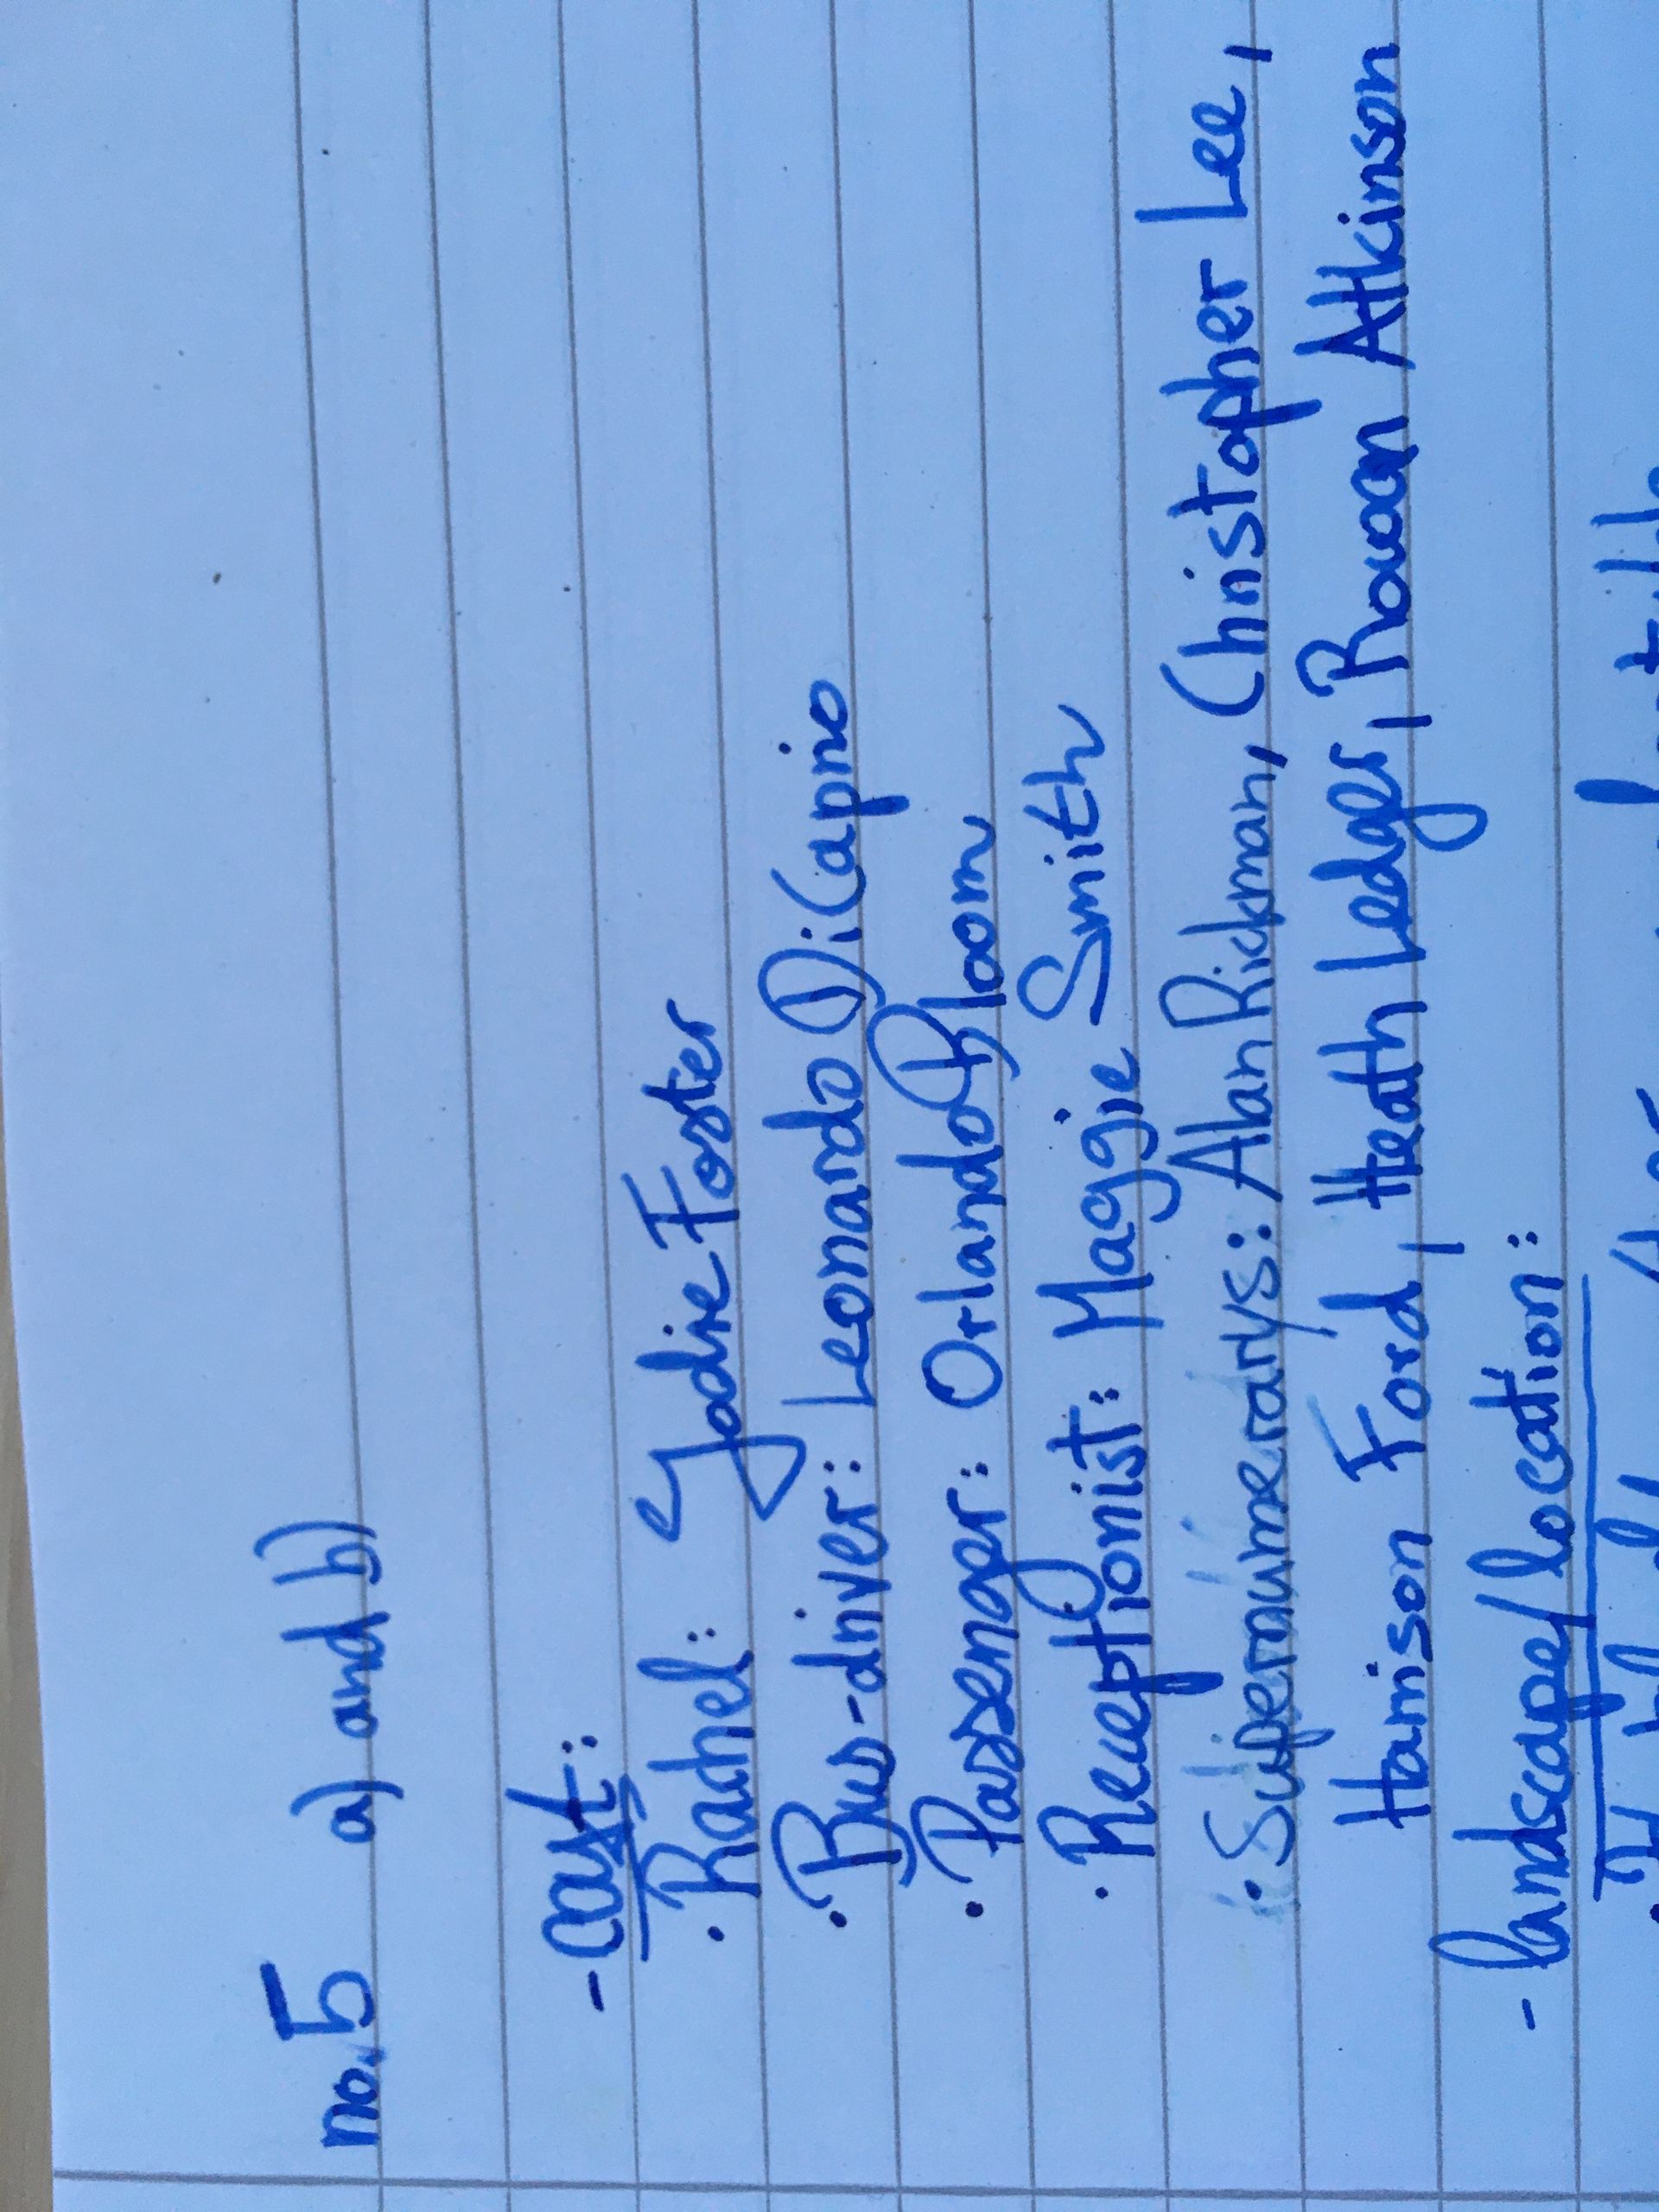 no.5 a) and b)
- cast:
· Rachel: Jodie Foster
· Bus-driver: Leonardo DiCaprio
· Passenger: Orlando Bloom
· Receptionist: Maggie Smith
· Supernumerarys: Alan Rickman, Christopher Lee,
Harrison Ford, Heath Ledger, Rowan Atkinson
- landscape/location: